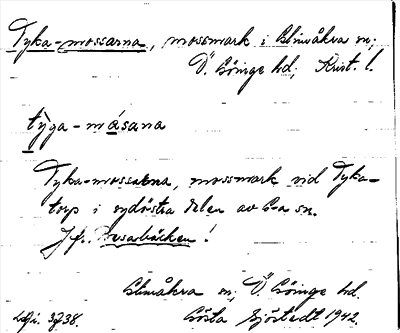 Tyka-mossarna, mossmark i Glimåkra sn;
Ö. Göinge hd, Krist. l.
tỳga-másana
Tyka-mossarna, mossmark vid Tyka-
torp i sydöstra delen av G-a sn.
Jfr. Besabäcken!
Glimåkra sn, Ö. Göinge hd.
Gösta Sjöstedt 1942.